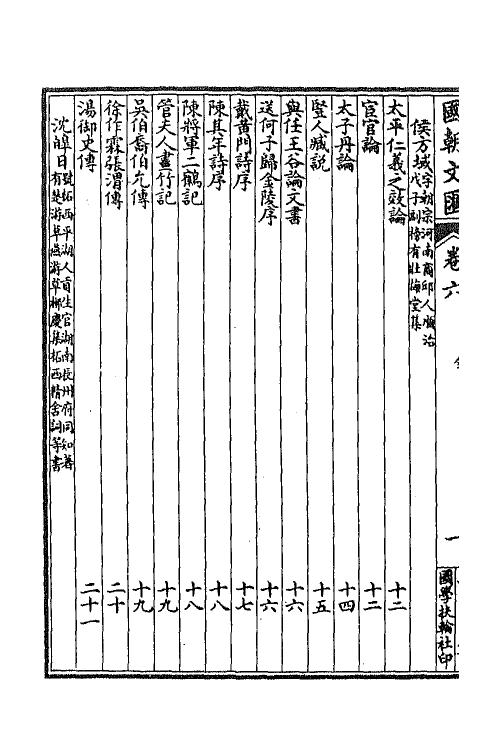 國朝文匯 卷六 一 國學扶輪社印
侯方域 字朝宗河南商邱人順治戊子副榜有壯悔堂集
太平仁義之效論 十二
宦官論 十二
太子丹論 十四
豎人臧説 十五
與任王谷論文書 十六
送何子歸金陵序 十六
戴黃門詩序 十七
陳其年詩序 十八
陳將軍二鶴記 十八
管夫人畫竹記 十九
吳伯裔伯允傳 十九
徐作霖張渭傳 二十
湯御史傳 二十一
沈皥日 號柘西平湖人貢生官湖南長州府同知著有楚游草燕游草柳慶集柘西精舍詞等書